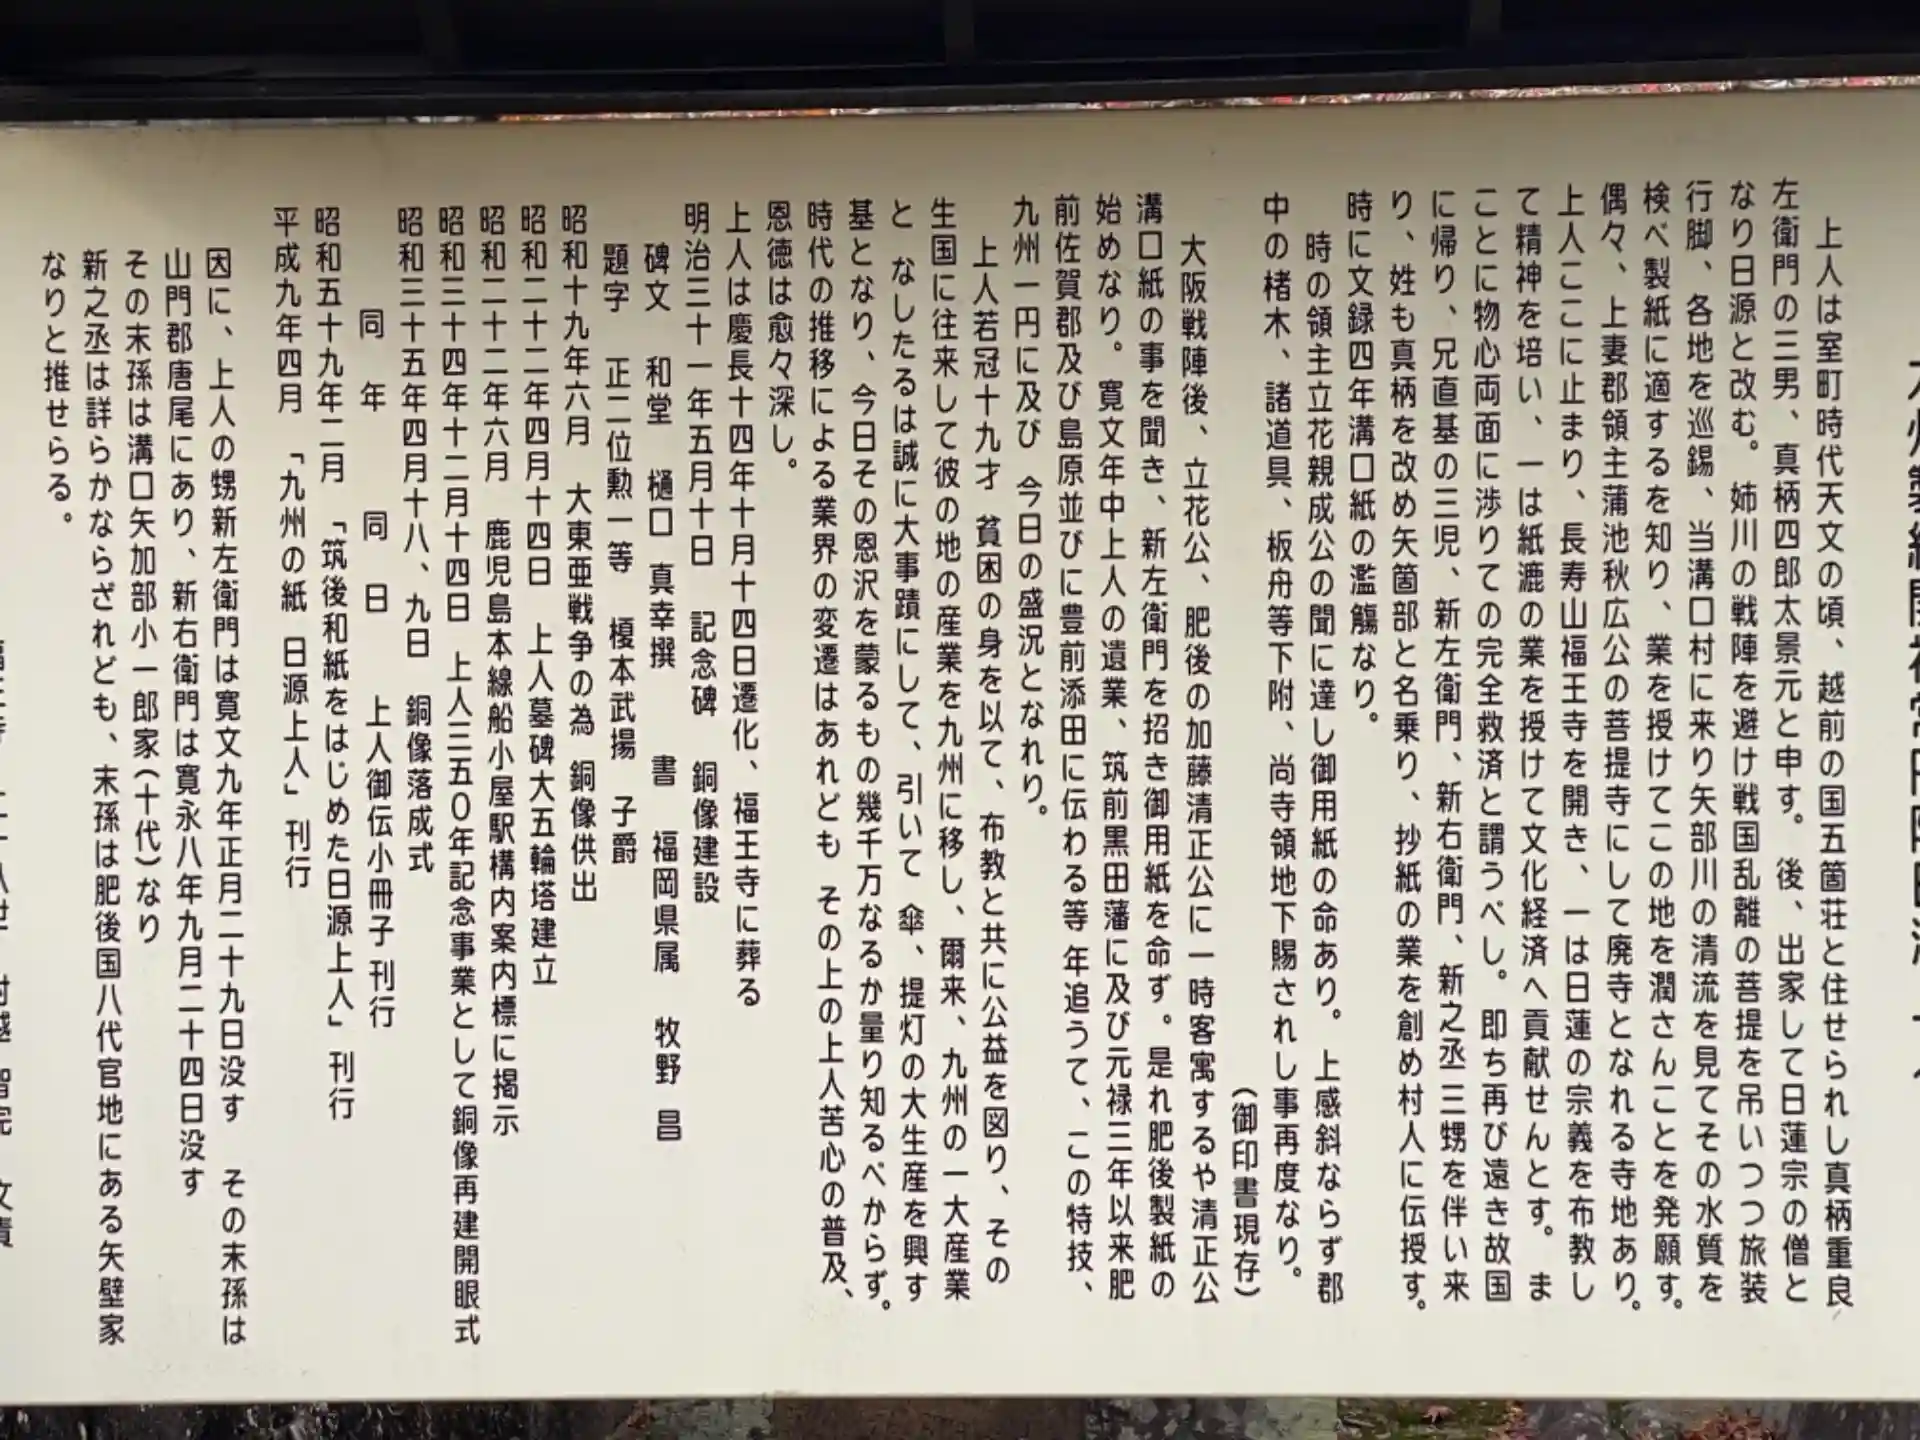 上人は室町時代天文の頃、越前の国五箇荘と住せられし真柄重良
左衛門の三男、真柄四郎太景元と申す。後、出家して日蓮宗の僧と
なり日源と改む。姉川の戦陣を避け戦国乱離の菩提を吊いつつ旅装
行脚、各地を巡錫、当溝口村に来り矢部川の清流を見てその水質を
検べ製紙に適するを知り、業を授けてこの地を潤さんことを発願す。
偶々、上妻郡領主蒲池秋広公の菩提寺にして廃寺となれる寺地あり。
上人ここに止まり、長寿山福王寺を開き、一は日蓮の宗義を布教し
て精神を培い、一は紙漉の業を授けて文化経済へ貢献せんとす。ま
ことに物心両面に渉りての完全救済と謂うべし。即ち再び遠き故国
に帰り、兄直基の三児、新左衛門、新右衛門、新之丞三甥を伴い来
り、姓も真柄を改め矢箇部と名乗り、抄紙の業を創め村人に伝授す。
時に文録四年溝口紙の濫觴なり。
時の領主立花親成公の聞に達し御用紙の命あり。上感斜ならず郡
中の楮木、諸道具、板舟等下附、尚寺領地下賜されし事再度なり。
(御印書現存)
大阪戦陣後、立花公、肥後の加藤清正公に一時客寓するや清正公
溝口紙の事を聞き、新左衛門を招き御用紙を命ず。是れ肥後製紙の
始めなり。寛文年中上人の遺業、筑前黒田藩に及び元禄三年以来肥
前佐賀郡及び島原並びに豊前添田に伝わる等 年追うて、この特技、
九州一円に及び 今日の盛況となれり。
上人若冠十九才 貧困の身を以て、布教と共に公益を図り、その
生国に往来して彼の地の産業を九州に移し、爾来、九州の一大産業
と なしたるは誠に大事蹟にして、引いて 傘、提灯の大生産を興す
基となり、今日その恩沢を蒙るもの幾千万なるか量り知るべからず。
時代の推移による業界の変遷はあれども その上の上人苦心の普及、
恩徳は愈々深し。
上人は慶長十四年十月十四日遷化、福王寺に葬る
明治三十一年五月十日 記念碑 銅像建設
碑文 和堂 樋口 真幸撰 書 福岡県属 牧野 昌
題字 正二位勲一等 榎本武揚 子爵
昭和十九年六月 大東亜戦争の為 銅像供出
昭和二十二年四月十四日 上人墓碑大五輪塔建立
昭和二十二年六月 鹿児島本線船小屋駅構内案内標に掲示
昭和三十四年十二月十四日 上人三五０年記念事業として銅像再建開眼式
昭和三十五年四月十八、九日 銅像落成式
同 年 同 日 上人御伝小冊子刊行
昭和五十九年二月 「筑後和紙をはじめた日源上人」刊行
平成九年四月 「九州の紙 日源上人」刊行
因に、上人の甥新左衛門は寛文九年正月二十九日没す その末孫は
山門郡唐尾にあり、新右衛門は寛永八年九月二十四日没す
その末孫は溝口矢加部小一郎家(十代)なり
新之丞は詳らかならざれども、末孫は肥後国八代官地にある矢壁家
なりと推せらる。